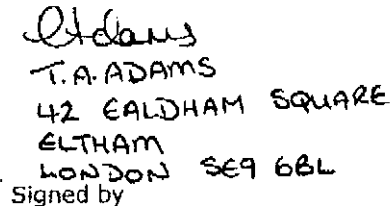 T.A. ADAMS
42 EALDHAM SQUARE
ELTHAM
LONDON SE9 6BL
Signed by